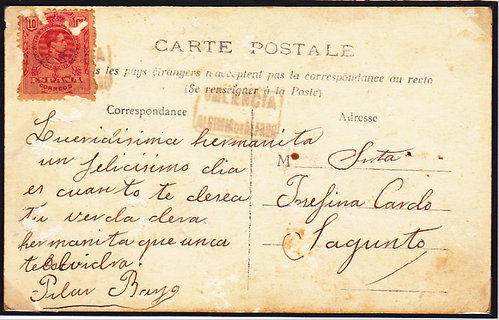 10 10
ESPAÑA
CORREOS
CARTE POSTALE
les pays étrangers n'acceptent pas la correspondance au recto
(Se renseigner à la Poste)
VALENCIA
Correspondance
Adresse
Queridisima hermanita
un felicisimo dia
es cuanto te desea
tu verda dera
hermanita que unca
te olvidra.
Pilar
M Srta
Josefina Cardo
Sagunto